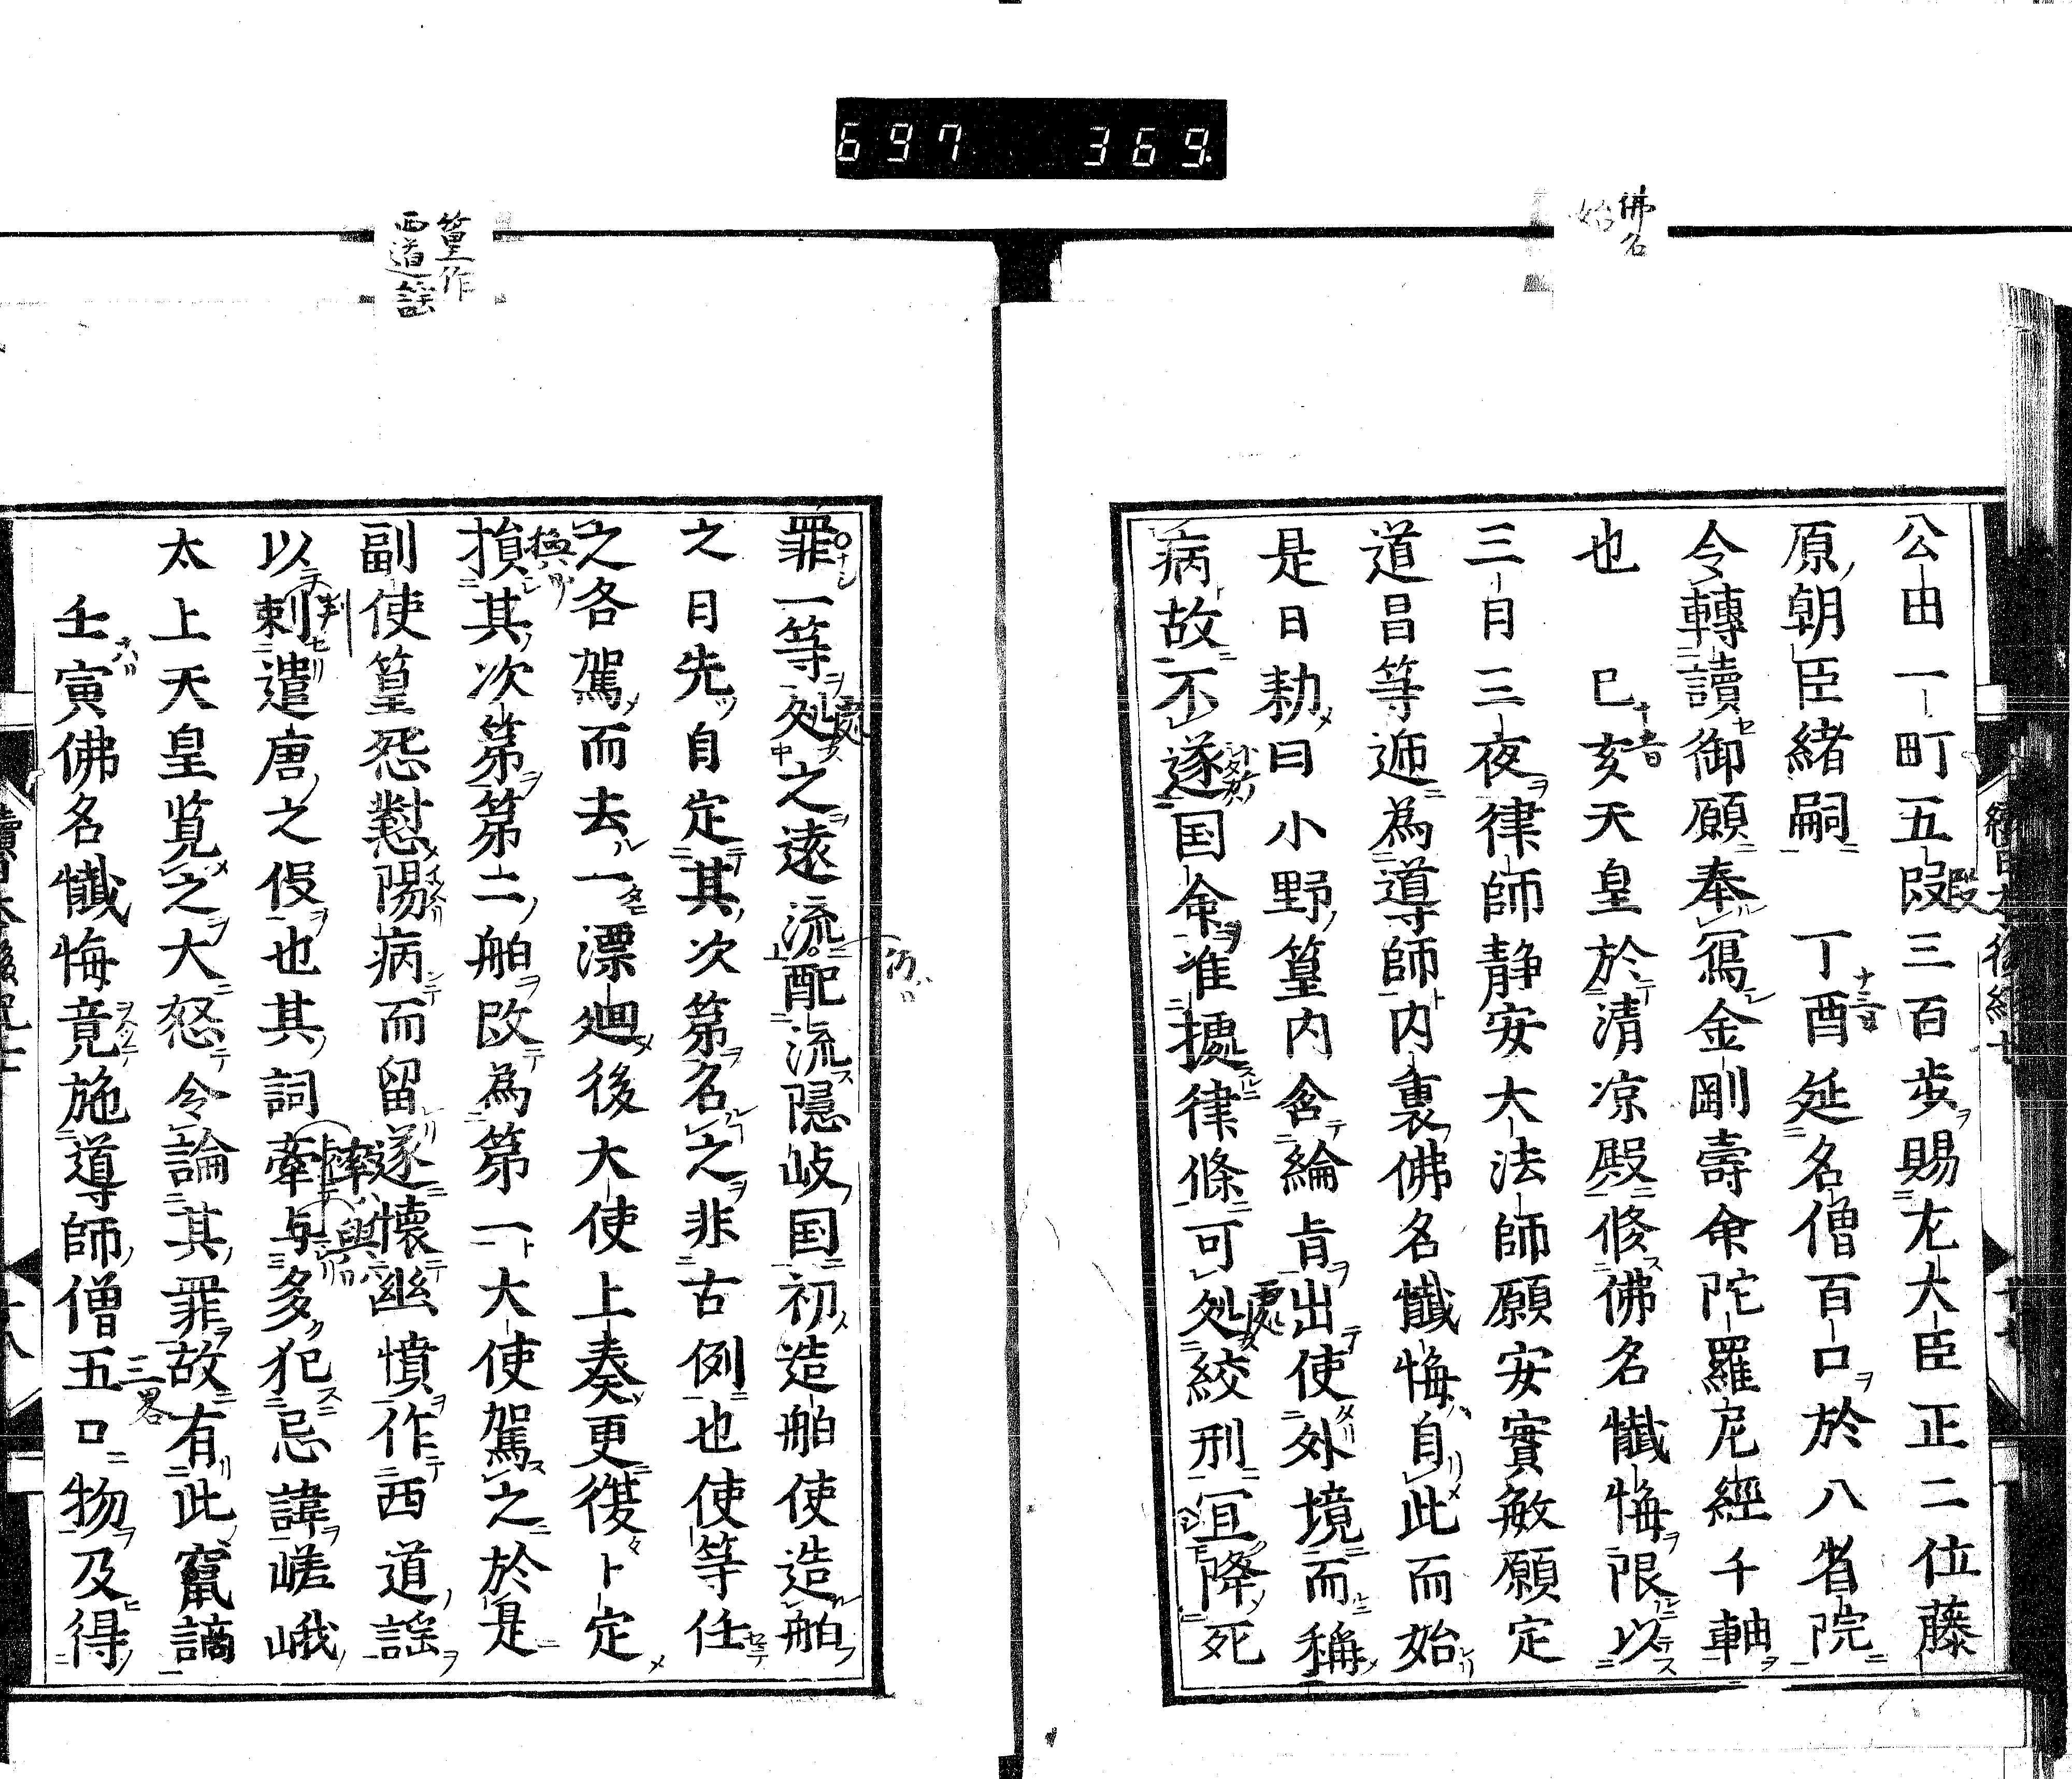 697 369
佛名
始
公田一町五段三百歩賜左大臣正二位藤
原朝臣緒嗣 丁酉延名僧百口於八省院
令轉讀御願奉寫金剛壽命陀羅尼經千軸
也 己亥天皇於清凉殿修佛名懺悔限以
三月三夜律師静安大法師願安實敏願定
道昌等逓為導師内裏佛名懺悔自此而始
是日勅曰小野篁内含綸旨出使外境而稱
病故不遂国命准據律條可処絞刑宜降死
篁作
西道謡
罪一等処之遠流配流隠岐国初造舶使造舶
之日先自定其次第名之非古例也使等任
之各駕而去一漂廻後大使上奏更復卜定
損其次第第二舶改為第一大使駕之於是
副使篁怨懟陽病而留遂懐幽憤作西道謡
以刺遣唐之役也其詞牽与多犯忌諱嵯峨
太上天皇覧之大怒令論其罪故有此竄謫
壬寅佛名懺悔竟施導師僧五口物及得